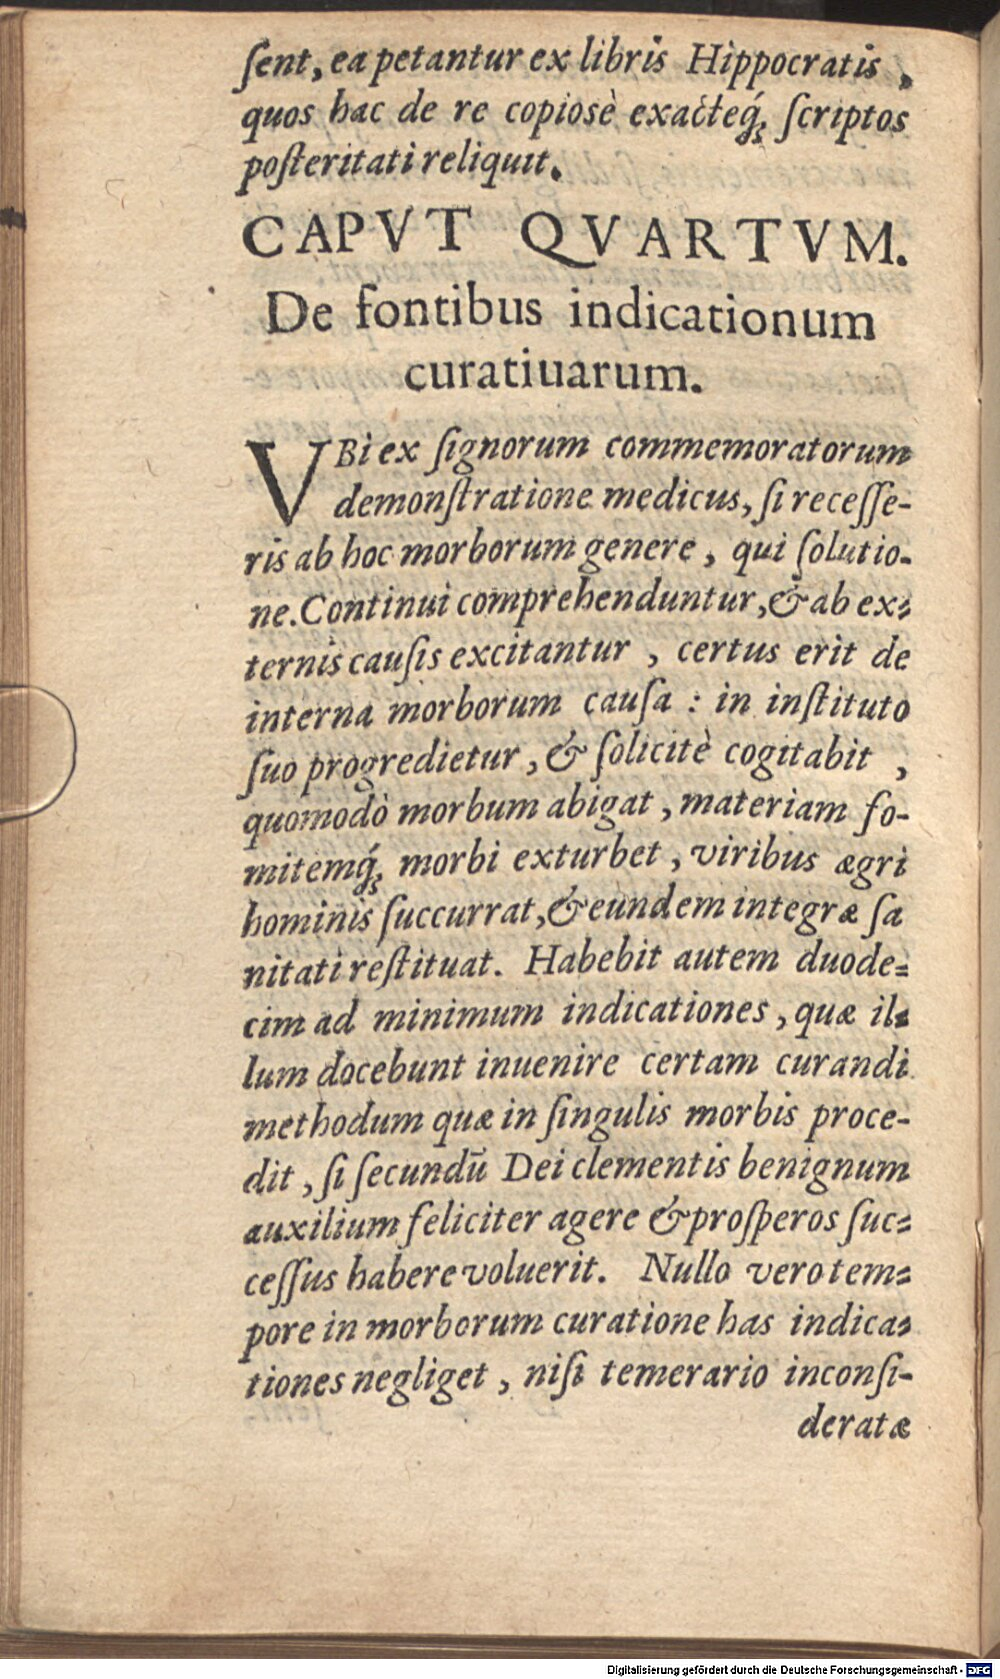 ſent, ea petantur ex libris Hippocratis,
quos hac de re copiosè exacteq́ꝫ ſcriptos
poſteritati reliquit.
CAPVT QVARTVM.
De fontibus indicationum
curatiuarum.
VBi ex ſignorum commemoratorum
demonſtratione medicus, ſi receſſe-
ris ab hoc morborum genere, qui ſolutio-
ne. Continui comprehenduntur, & ab ex-
ternis cauſis excitantur, certus erit de
interna morborum cauſa: in inſtituto
ſuo progredietur, & ſolicitè cogitabit,
quomodò morbum abigat, materiam fo-
mitemq́ꝫ morbi exturbet, viribus ægri
hominis ſuccurrat, & eundem integræ ſa
nitati reſtituat. Habebit autem duode-
cim ad minimum indicationes, quæ il-
lum docebunt inuenire certam curandi
methodum quæ in ſingulis morbis proce-
dit, ſi ſecundũ Dei clementis benignum
auxilium feliciter agere & proſperos ſuc-
ceſſus habere voluerit. Nullo vero tem-
pore in morborum curatione has indica-
tiones negliget, niſi temerario inconſi-
deratæ
Digitalisierung gefördert durch die Deutsche Forschungsgemeinschaft - DFG